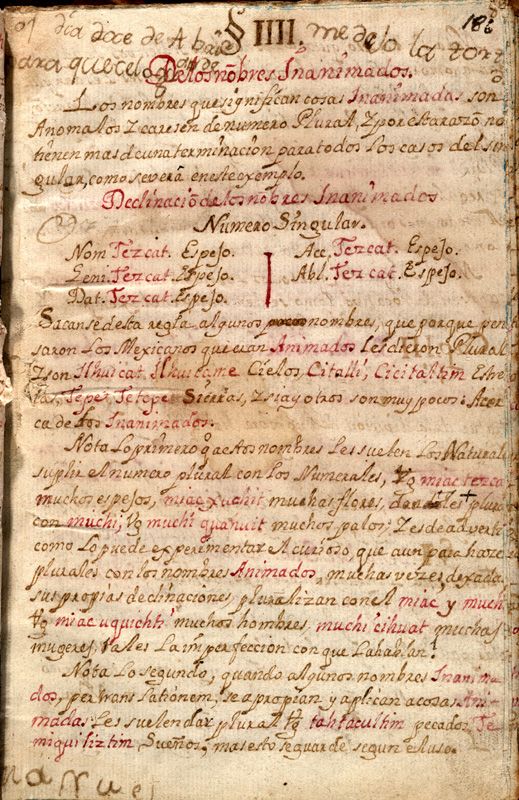 dia doce de Abril me de lo la
§ IIII.
186
para que
De los nõbres Inanimados.
Los nombres que significan cosas Inanimadas son
Anomalos Z caresen de numero Plural, Z por esta razõ no
tienen mas de una terminacion para todos los casos del sin
gular, como se verá en este exemplo.
Declinaciõ de los nõbres Inanimados
Numero Singular.
Nom. Tezcat. Espejo. Acc. Tezcat. Espejo.
Geni. Tezcat. Espejo. Abl. Tezcat. Espejo.
Dat. Tezcat. Espejo.
Sacanse desta regla algunos nombres, que porque pen
saron Los Mexicanos que eran Animados les dieron Plural
Z son Ilhuicat. Ilhuicame Cielos, Citalli, Cicitaltin Estre
llas, Tepet, Tetepet Sierras, Z si ay otros son muy pocos: Acer
ca de los Inanimados.
Nota Lo primero q̃ a estos nombres les suelen Los Naturales
suplir el numero plural con los Numerales, Vg miac tezcat
muchos espejos, miac xuchit muchas flores, plural
con muchi, Vg muchi quahuit muchos palos: Z es de advertir
como Lo puede experimentar el curioso, que aun para hazer
plurales con los nombres Animados, muchas vezes dexadas
sus propias declinaciones pluralizan con el miac y muchi
Vg miac uquichti muchos hombres, muchi cihuat muchas
mugeres, tal es La imperfeccion con que La hablan.
Nota Lo segundo, quando algunos nombres Inanima
dos, per translationem, se apropian y aplican a cosas Ani
madas Les suelen dar plural Vg tahtacultin pecados, Te
miquiliztin Sueños, mas esto se guarde segun el uso.